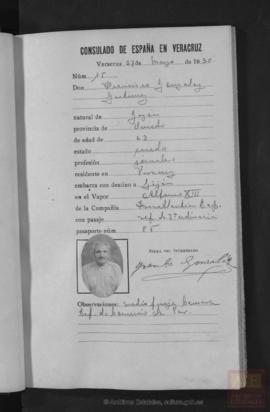 CONSULADO DE ESPAÑA EN VERACRUZ
Veracruz 27 de Mayo de 1930
Núm. 15
Don Francisco Gonzalez
natural de Gijón
provincia de Oviedo
de edad de
estado
profesión jornalero
residente en Veracruz
embarca con destino a Gijón
en el Vapor Alfonso XIII
de la Compañía Trasatlántica Esp.
con pasaje rep. de 3ª ordinaria
pasaporte núm. 85
FIRMA DEL INTERESADO
Gonzalez
Observaciones: medio pasaje
© Archivos Estatales, cultura.gob.es